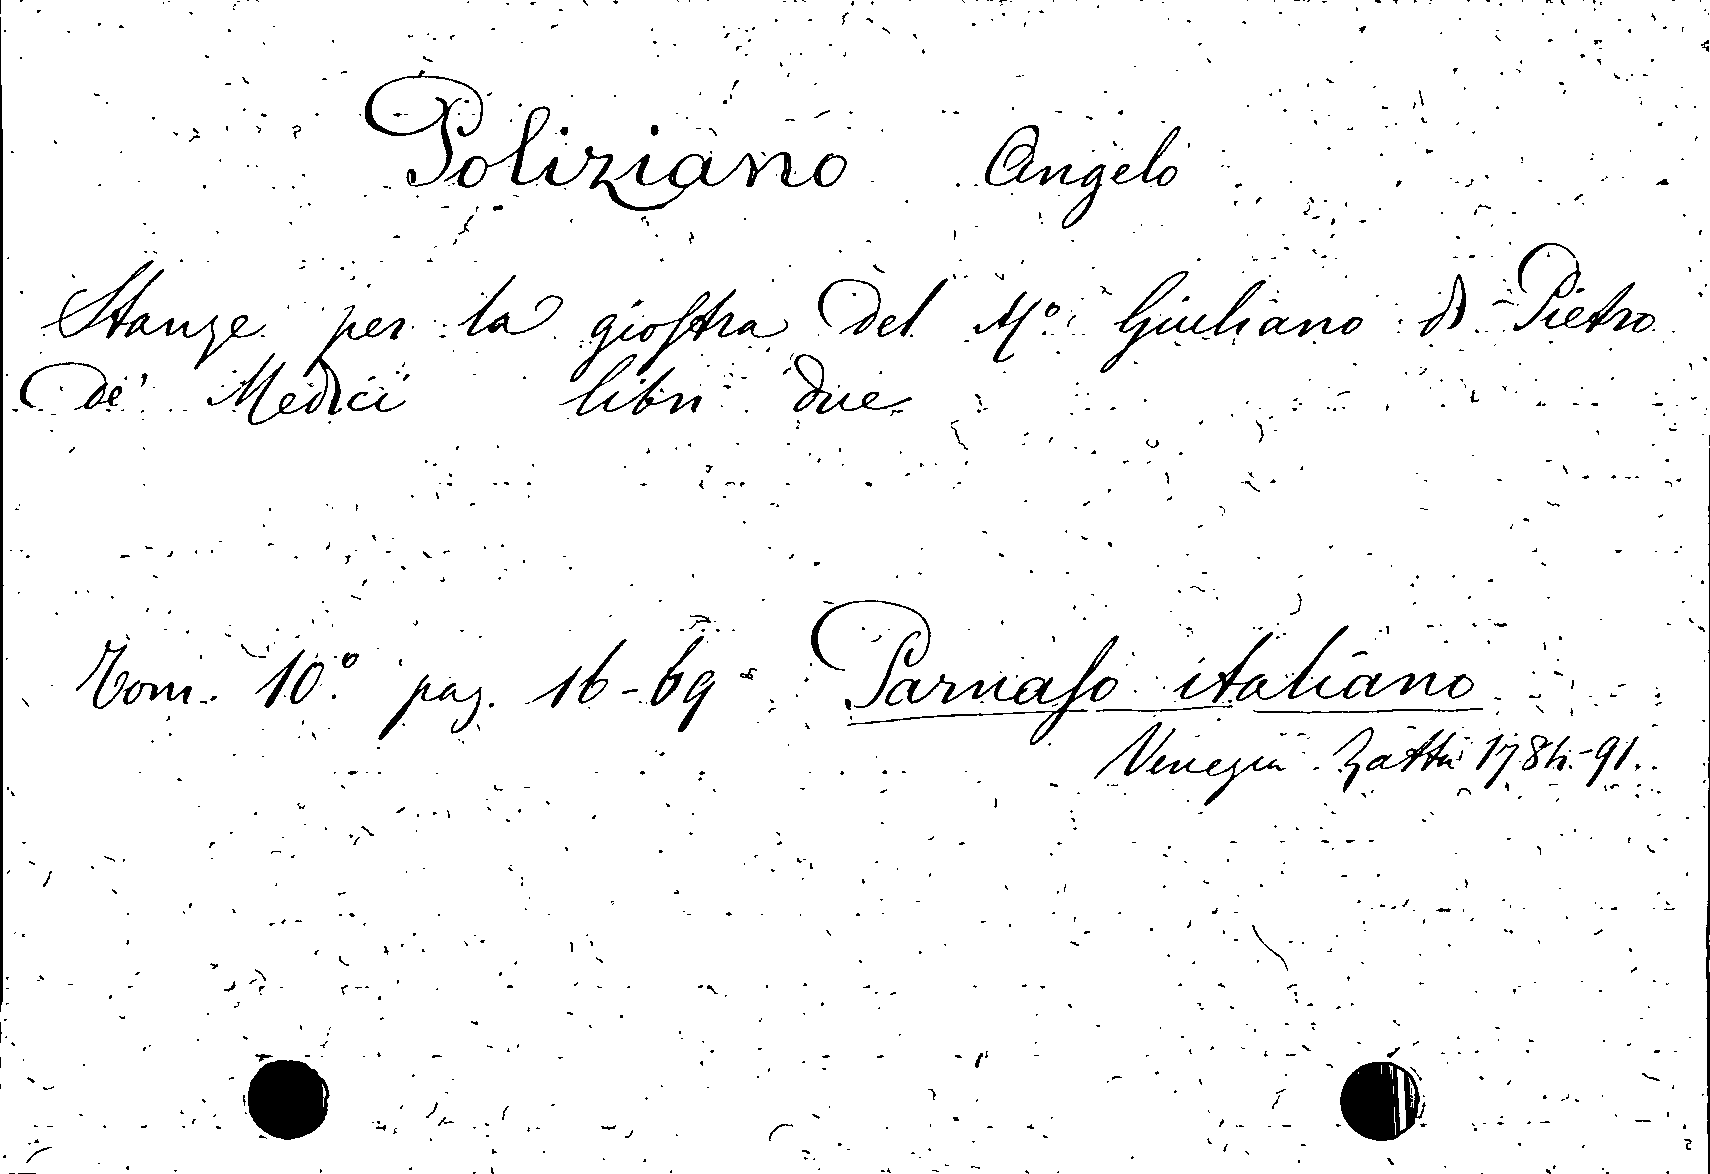 Poliziano Angelo
Stanze per la giostra del Mº Giuliano di Pietro
de' Medici libri due
Tom. 10.º pag. 16-69 Parnaso italiano
Venezia. Zatta 1784.-91.